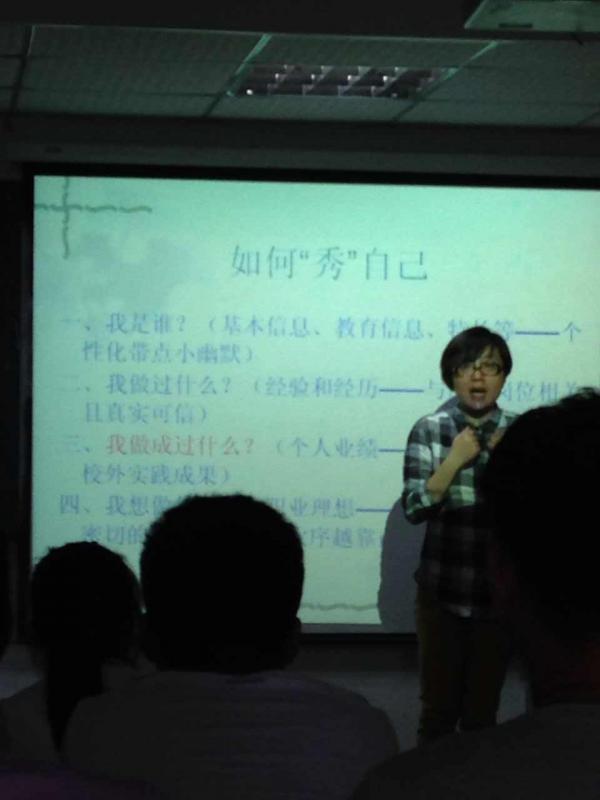 如何“秀”自己
一、我是谁?（基本信息、教育信息、特长等——个
性化带点小幽默）
二、我做过什么?（经验和经历——与 岗位相关
且真实可信）
三、我做成过什么?（个人业绩—
校外实践成果）
四、我想做 职业理想—
密切的 序越靠